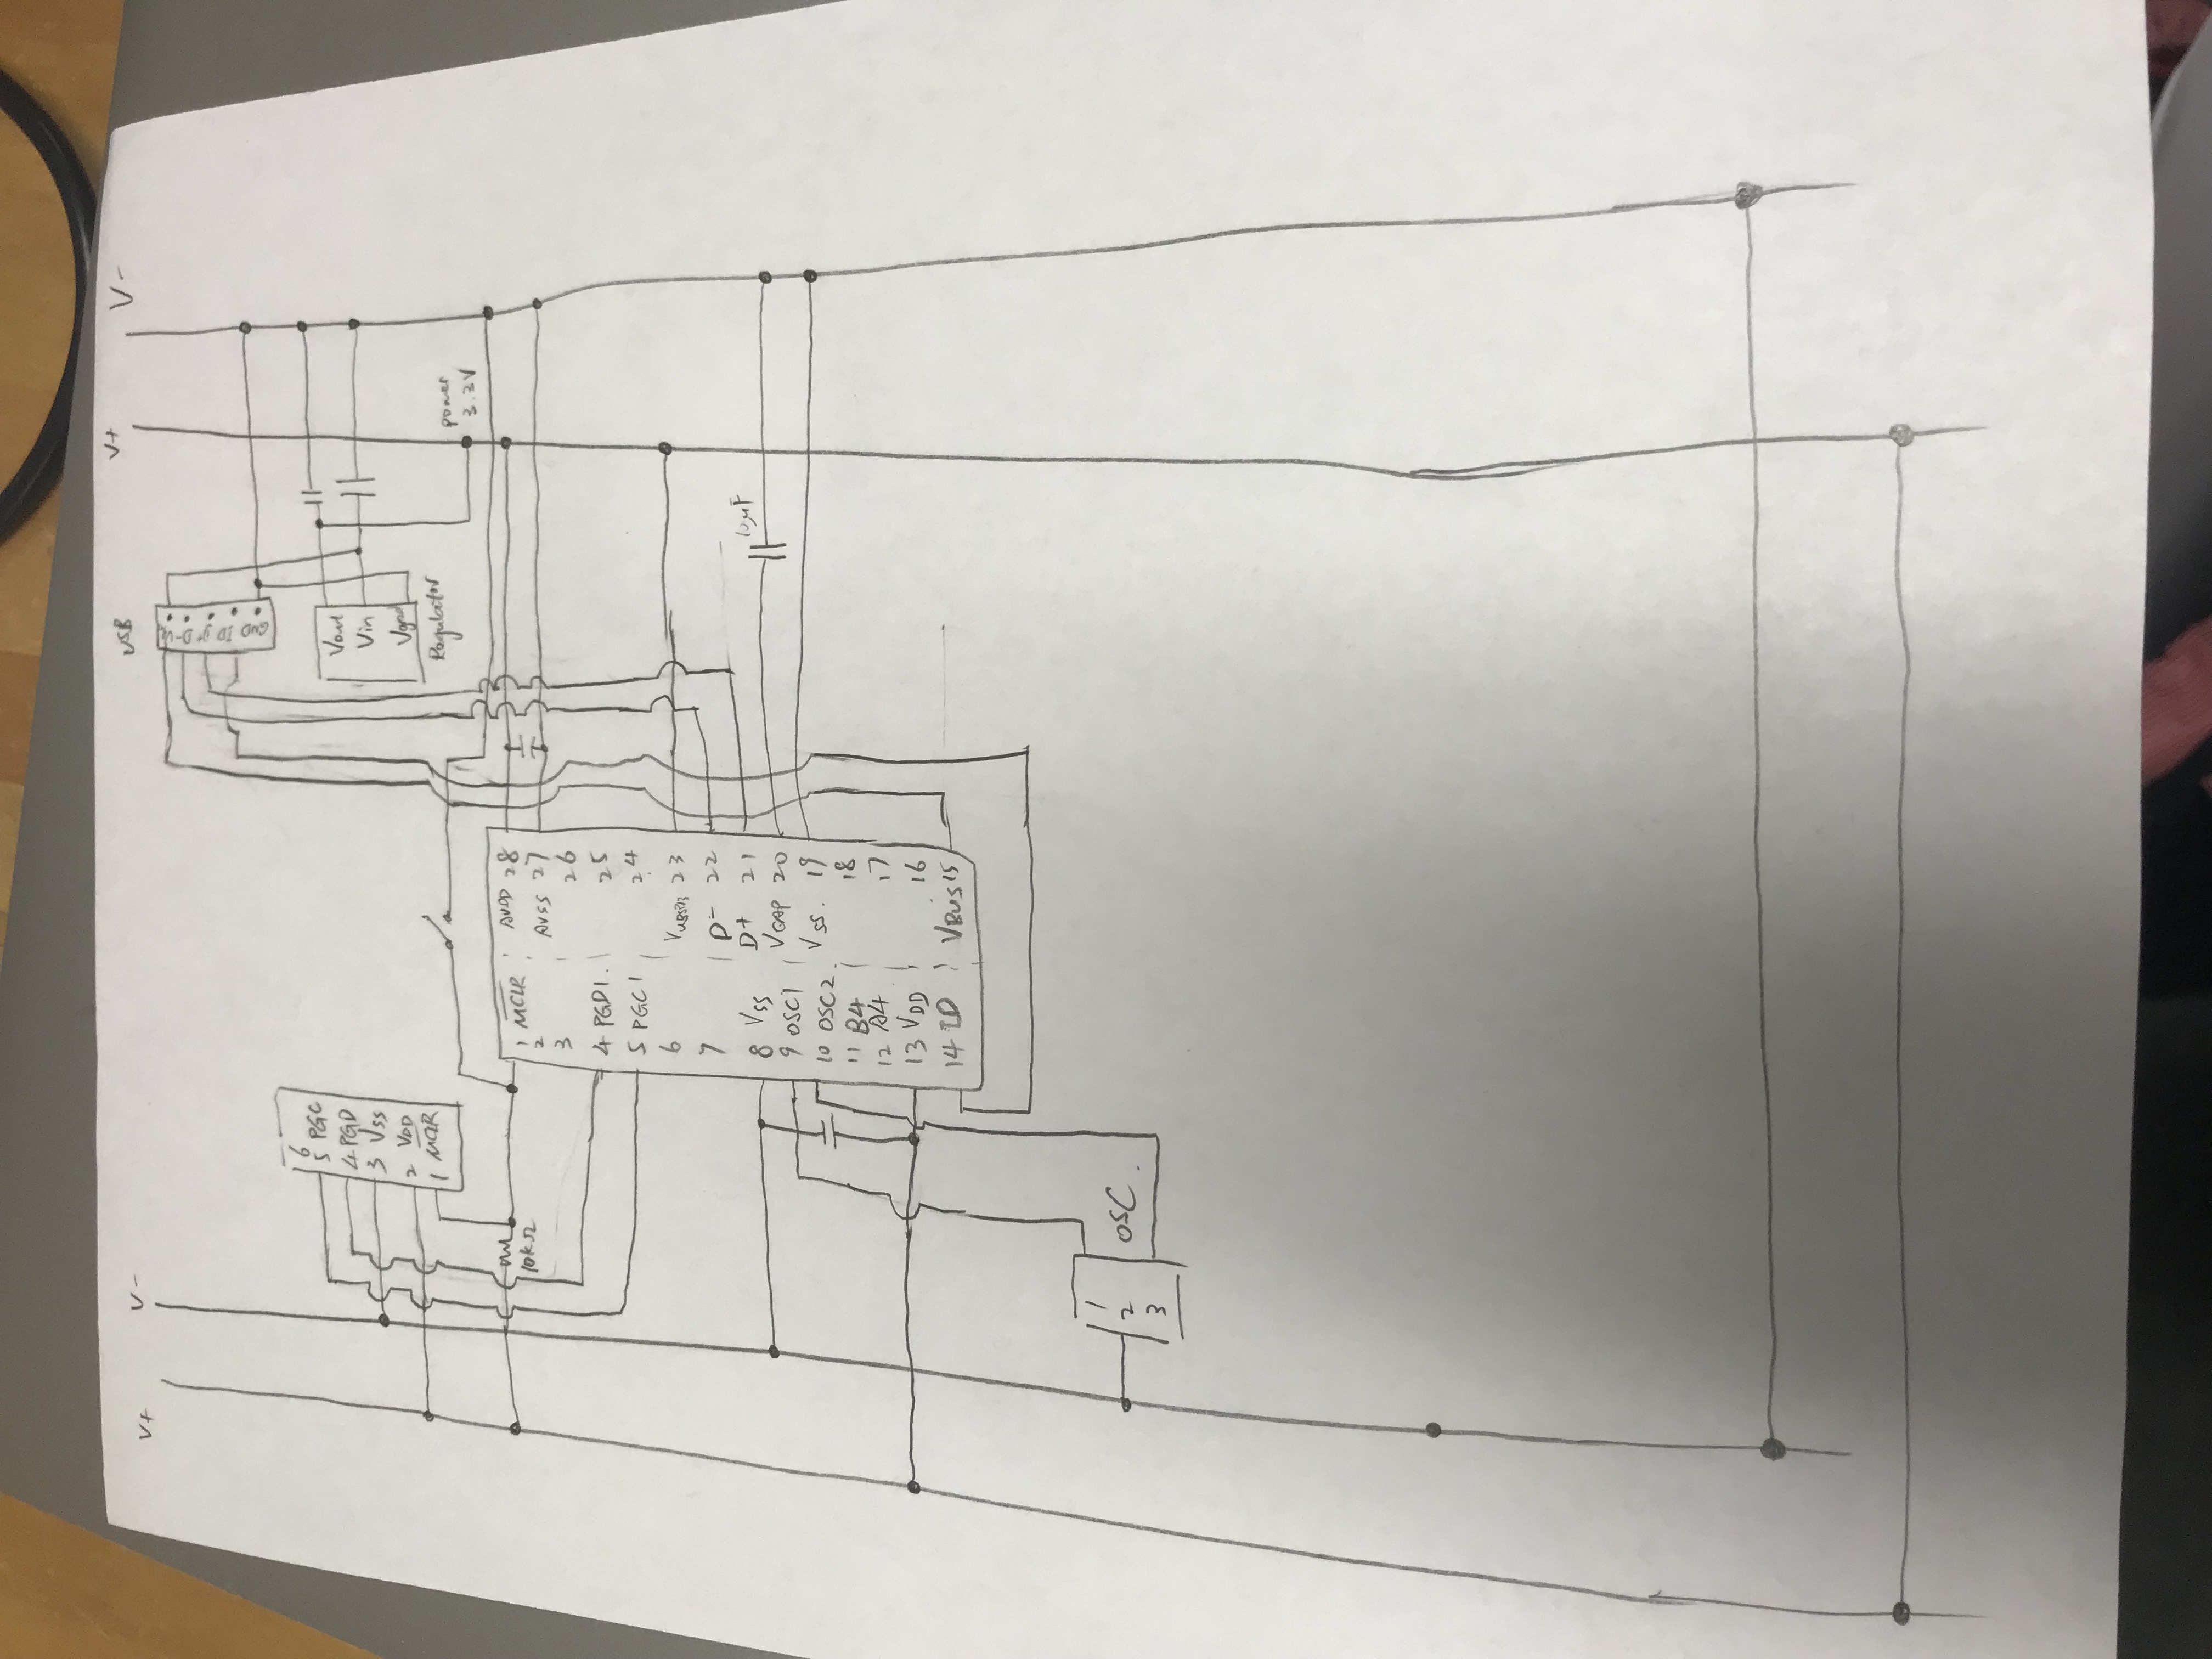 V+
V-
USB
V+
V-
D-
ID
GND
6
5 PGC
4 PGD
3 VSS
2 VDD
1 MCLR
Vout
Vin
Vgnd
Regulator
power
3.3V
10kΩ
1 MCLR
2
3
4 PGD1.
5 PGC1
6
7
8 VSS
9 OSC1
10 OSC2.
11 B4
12 A4
13 VDD
14 ID
AVDD 28
AVSS 27
26
25
24
23
D- 22
D+ 21
VCAP 20
VSS. 19
18
17
16
VBUS 15
10µF
1
2
3
OSC.